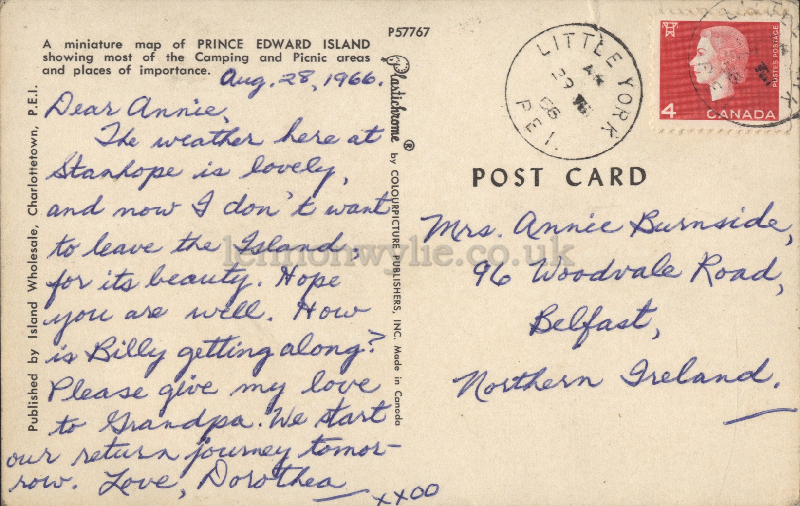 P57767
A miniature map of PRINCE EDWARD ISLAND
showing most of the Camping and Picnic areas
and places of importance.
Aug. 28, 1966.
Dear Annie,
The weather here at
Stanhope is lovely,
and now I don't want
to leave the Island,
for its beauty. Hope
you are well. How
is Billy getting along?
Please give my love
to Grandpa. We start
our return journey tomor-
row. Love, Dorothea
xxoo
Published by Island Wholesale, Charlottetown, P.E.I.
Plastichrome ® by COLOURPICTURE PUBLISHERS, INC. Made in Canada
LITTLE YORK
P.E.I.
4
CANADA
POSTES POSTAGE
POST CARD
Mrs. Annie Burnside,
96 Woodvale Road,
Belfast,
Northern Ireland.
lennonwylie.co.uk